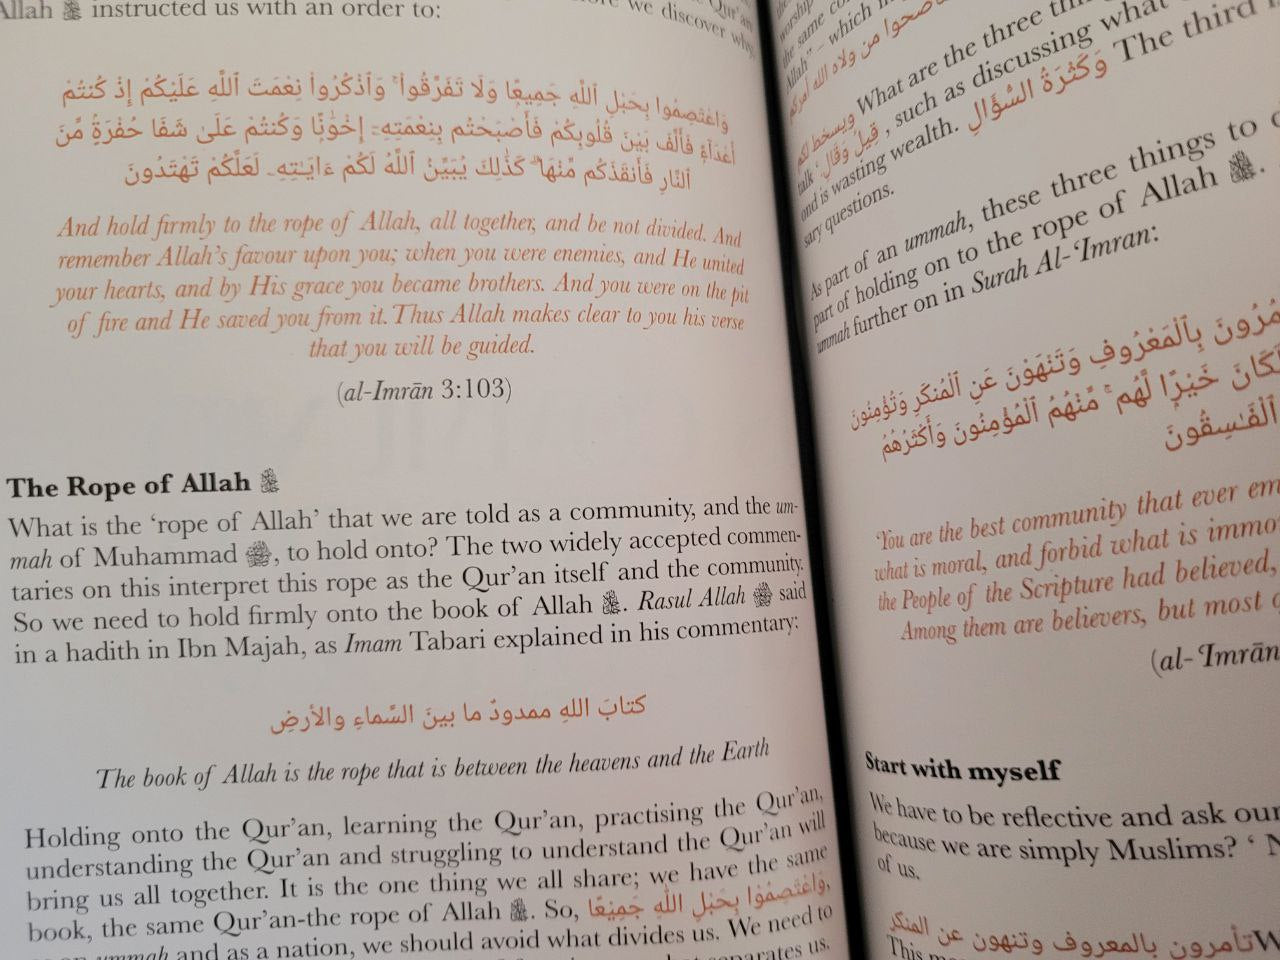 Allah ﷻ instructed us with an order to:
we discover why
وَٱعْتَصِمُوا۟ بِحَبْلِ ٱللَّهِ جَمِيعًا وَلَا تَفَرَّقُوا۟ ۚ وَٱذْكُرُوا۟ نِعْمَتَ ٱللَّهِ عَلَيْكُمْ إِذْ كُنتُمْ
أَعْدَآءً فَأَلَّفَ بَيْنَ قُلُوبِكُمْ فَأَصْبَحْتُم بِنِعْمَتِهِۦٓ إِخْوَٰنًا وَكُنتُمْ عَلَىٰ شَفَا حُفْرَةٍ مِّنَ
ٱلنَّارِ فَأَنقَذَكُم مِّنْهَا ۗ كَذَٰلِكَ يُبَيِّنُ ٱللَّهُ لَكُمْ ءَايَـٰتِهِۦ لَعَلَّكُمْ تَهْتَدُونَ
And hold firmly to the rope of Allah, all together, and be not divided. And
remember Allah's favour upon you; when you were enemies, and He united
your hearts, and by His grace you became brothers. And you were on the pit
of fire and He saved you from it. Thus Allah makes clear to you his verse
that you will be guided.
(al-Imrān 3:103)
The Rope of Allah ﷻ
What is the 'rope of Allah' that we are told as a community, and the um-
mah of Muhammad ﷺ, to hold onto? The two widely accepted commen-
taries on this interpret this rope as the Qur'an itself and the community.
So we need to hold firmly onto the book of Allah ﷻ. Rasul Allah ﷺ said
in a hadith in Ibn Majah, as Imam Tabari explained in his commentary:
كتابَ اللهِ ممدودٌ ما بينَ السَّماءِ والأرضِ
The book of Allah is the rope that is between the heavens and the Earth
Holding onto the Qur'an, learning the Qur'an, practising the Qur'an,
understanding the Qur'an and struggling to understand the Qur'an will
bring us all together. It is the one thing we all share; we have the same
book, the same Qur'an-the rope of Allah ﷻ. So, وَاعْتَصِمُوْا بِحَبْلِ اللهِ جَمِيْعًا,
ummah and as a nation, we should avoid what divides us. We need to
separates us.
worship
the same
Allah" – which
من ولاه الله أمركم
ويسخط لكم What are the three
talk قِيلَ وَقَالَ, such as discussing what
ond is wasting wealth. وَكَثْرَةُ السُّؤَالِ The third
sary questions.
As part of an ummah, these three things to
part of holding on to the rope of Allah ﷻ.
ummah further on in Surah Al-'Imran:
بِٱلْمَعْرُوفِ وَتَنْهَوْنَ عَنِ ٱلْمُنكَرِ وَتُؤْمِنُونَ
لَكَانَ خَيْرًا لَّهُم ۚ مِّنْهُمُ ٱلْمُؤْمِنُونَ وَأَكْثَرُهُمُ
ٱلْفَـٰسِقُونَ
'You are the best community that ever em
what is moral, and forbid what is immo
the People of the Scripture had believed,
Among them are believers, but most
(al-'Imrān
Start with myself
We have to be reflective and ask our
because we are simply Muslims? '
of us.
تأمرون بالمعروف وتنهون عن المنكر
This